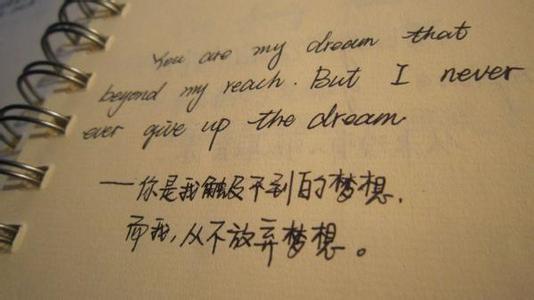 You are my dream that
beyond my reach. But I never
ever give up the dream
——你是我触及不到的梦想.
而我,从不放弃梦想。